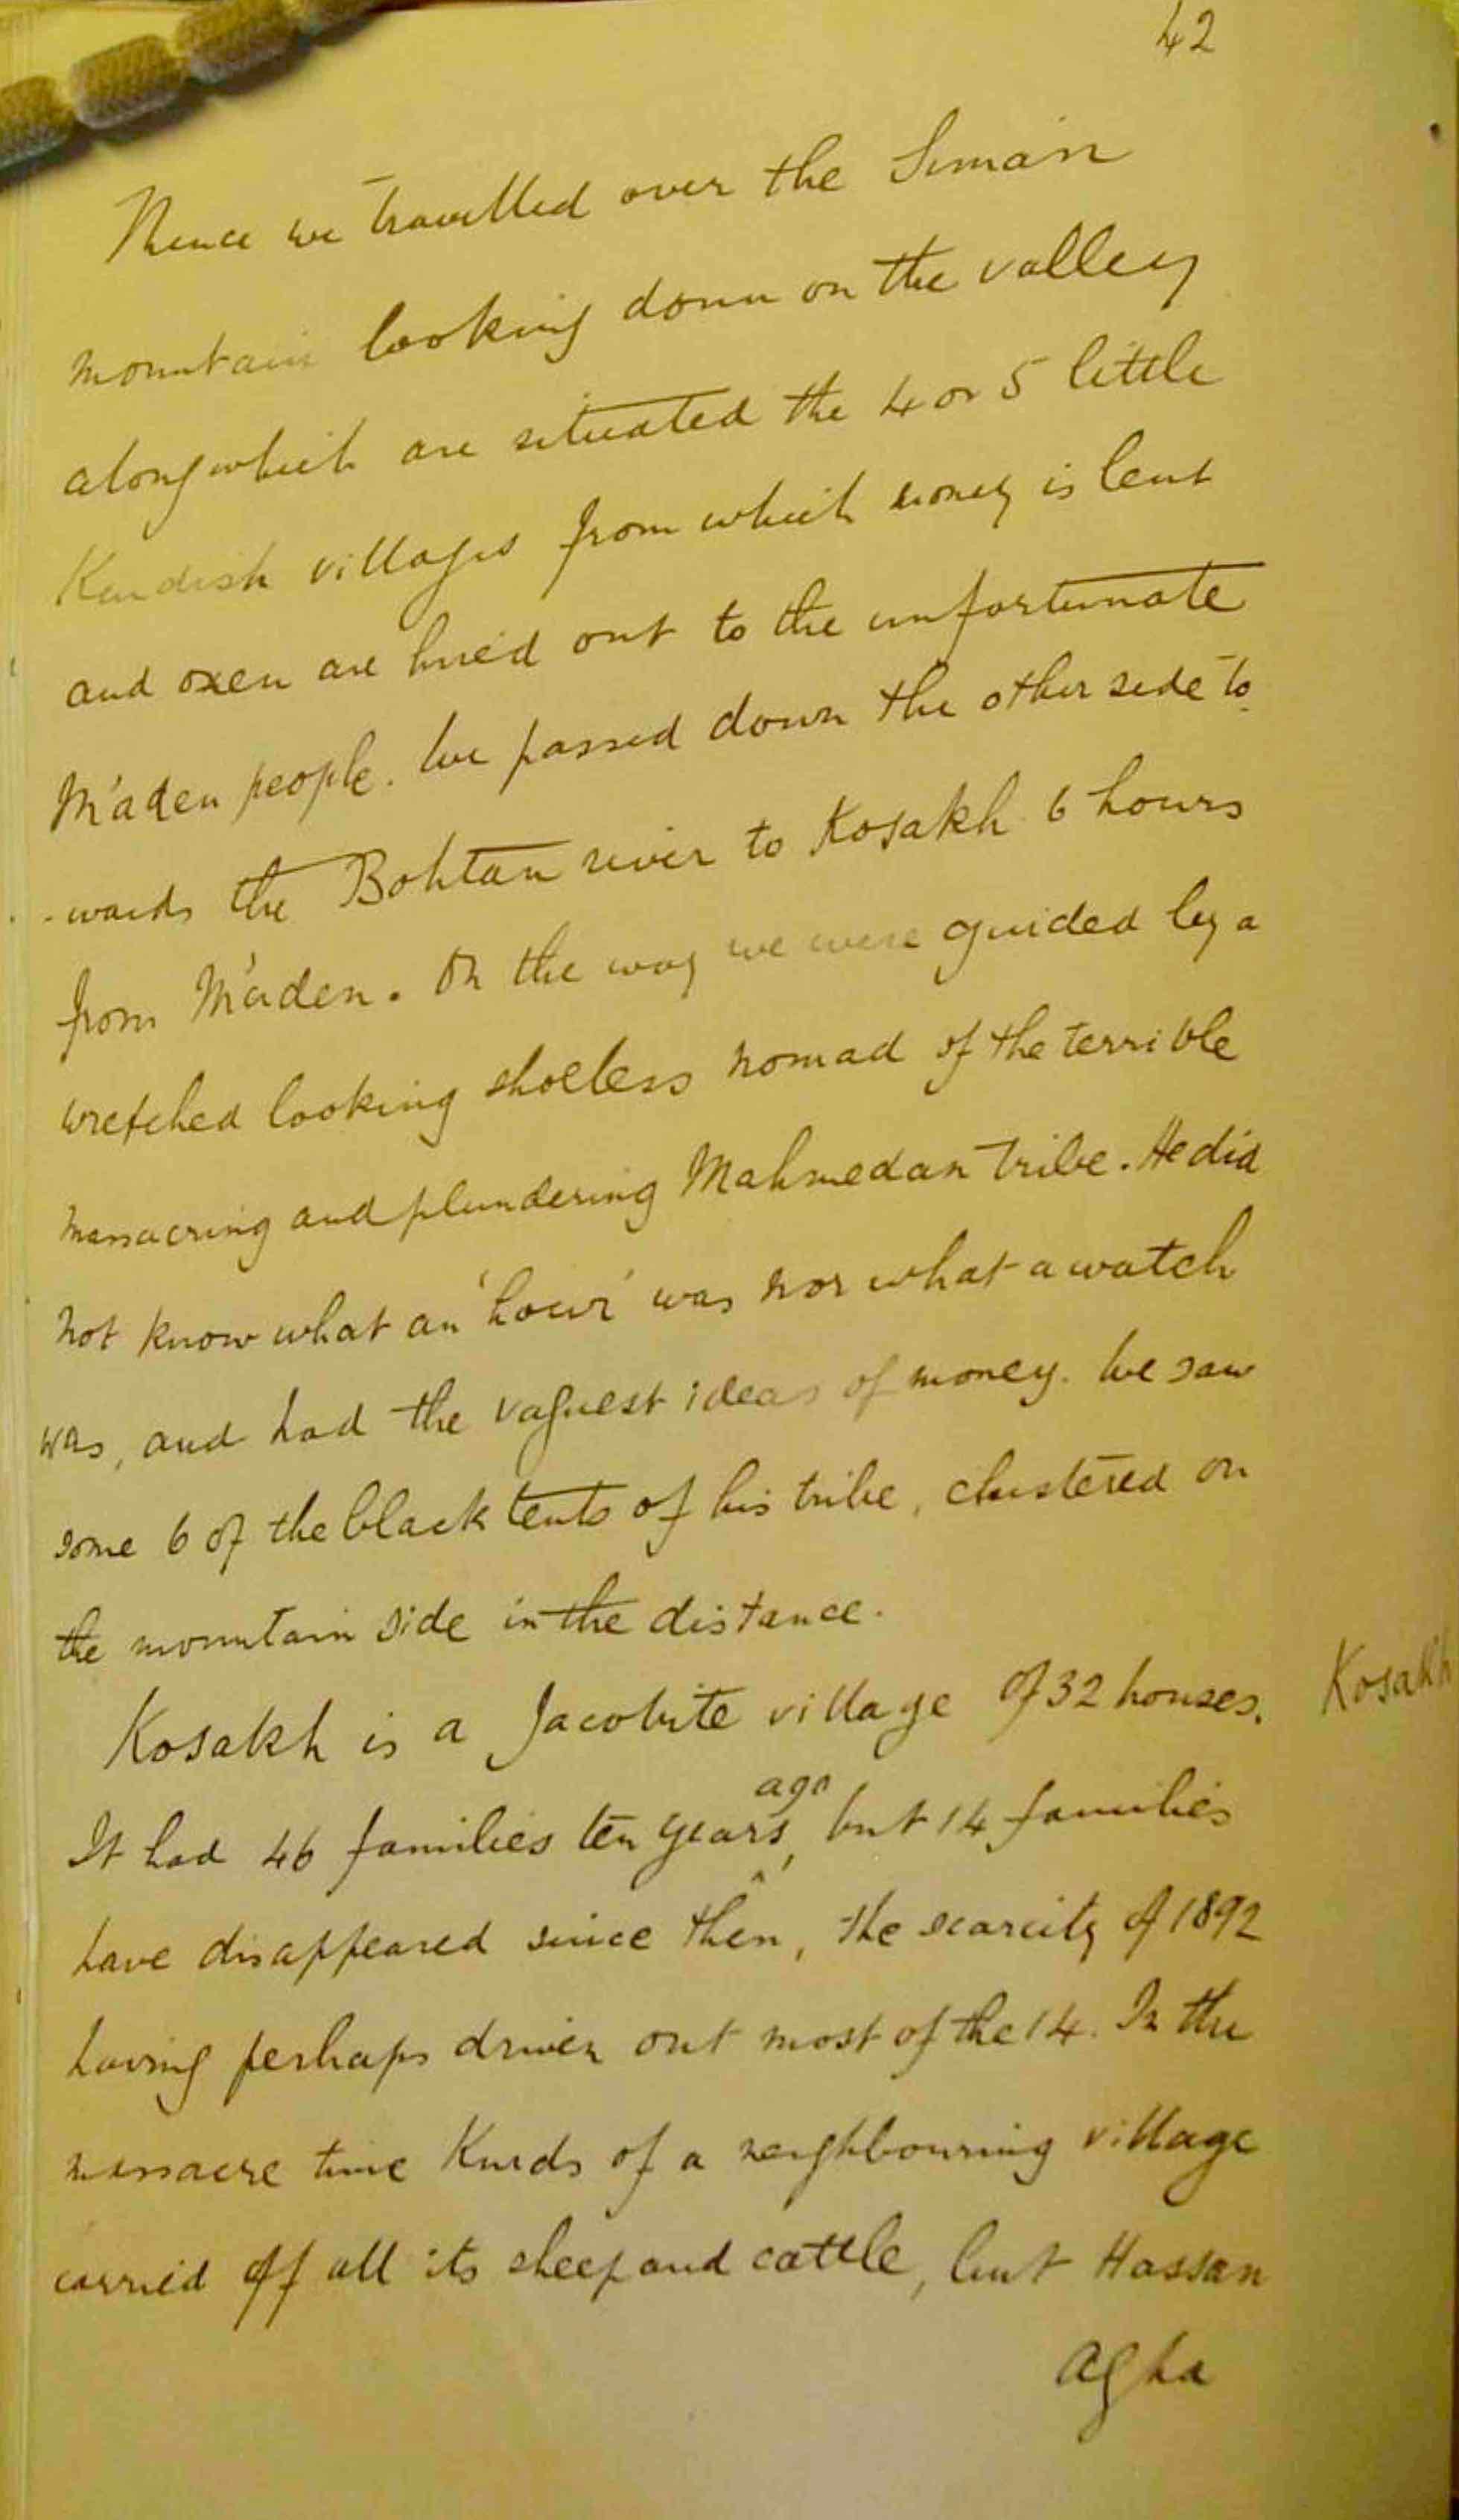 42
Thence we travelled over the Siman
mountain looking down on the valley
along which are situated the 4 or 5 little
Kurdish villages from which money is lent
and oxen are hired out to the unfortunate
M'aden people. We passed down the other side to
-wards the Bohtan river to Kosakh 6 hours
from M'aden. On the way we were guided by a
wretched looking shoeless nomad of the terrible
massacring and plundering Mahmedan tribe. He did
not know what an 'hour' was nor what a watch
was, and had the vaguest ideas of money. We saw
some 6 of the black tents of his tribe, clustered on
the mountain side in the distance.
Kosakh is a Jacobite village of 32 houses.
Kosakh
It had 46 families ten years ago, but 14 families
have disappeared since then, the scarcity of 1892
having perhaps driven out most of the 14. In the
massacre time Kurds of a neighbouring village
carried off all its sheep and cattle, but Hassan
Agha